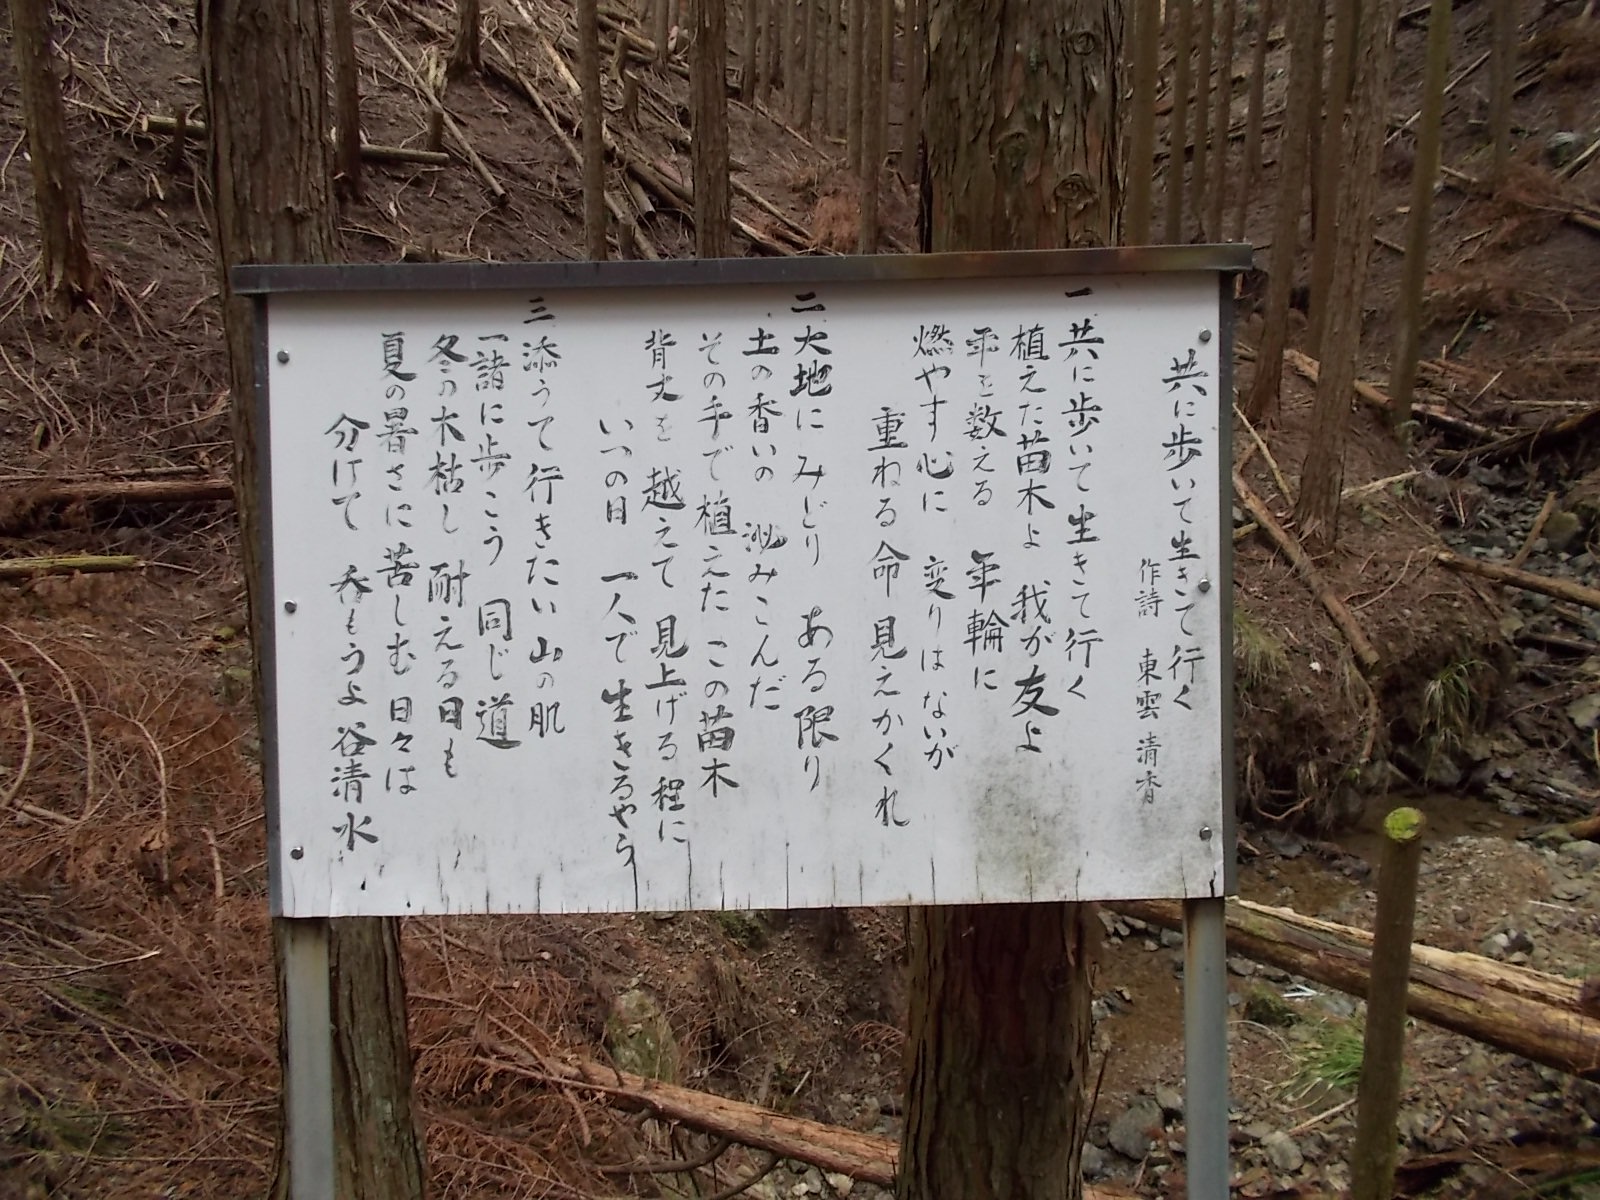 共に歩いて生きて行く
作詩 東雲 清香
一
共に歩いて生きて行く
植えた苗木よ 我が友よ
年を数える 年輪に
燃やす心に 変りはないが
重ねる命 見えかくれ
二
大地にみどり ある限り
土の香いの 沁みこんだ
その手で植えた この苗木
背丈を越えて 見上げる程に
いつの日 一人で生きるやら
三
添うて行きたい山の肌
一諸に歩こう 同じ道
冬の木枯し 耐える日も
夏の暑さに苦しむ日々は
分けて 呑もうよ 谷清水